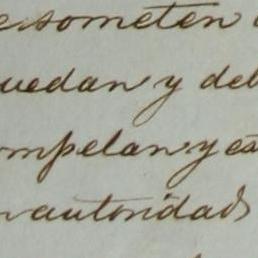 esometen
uedan y deb
ompelan y es
autoridad